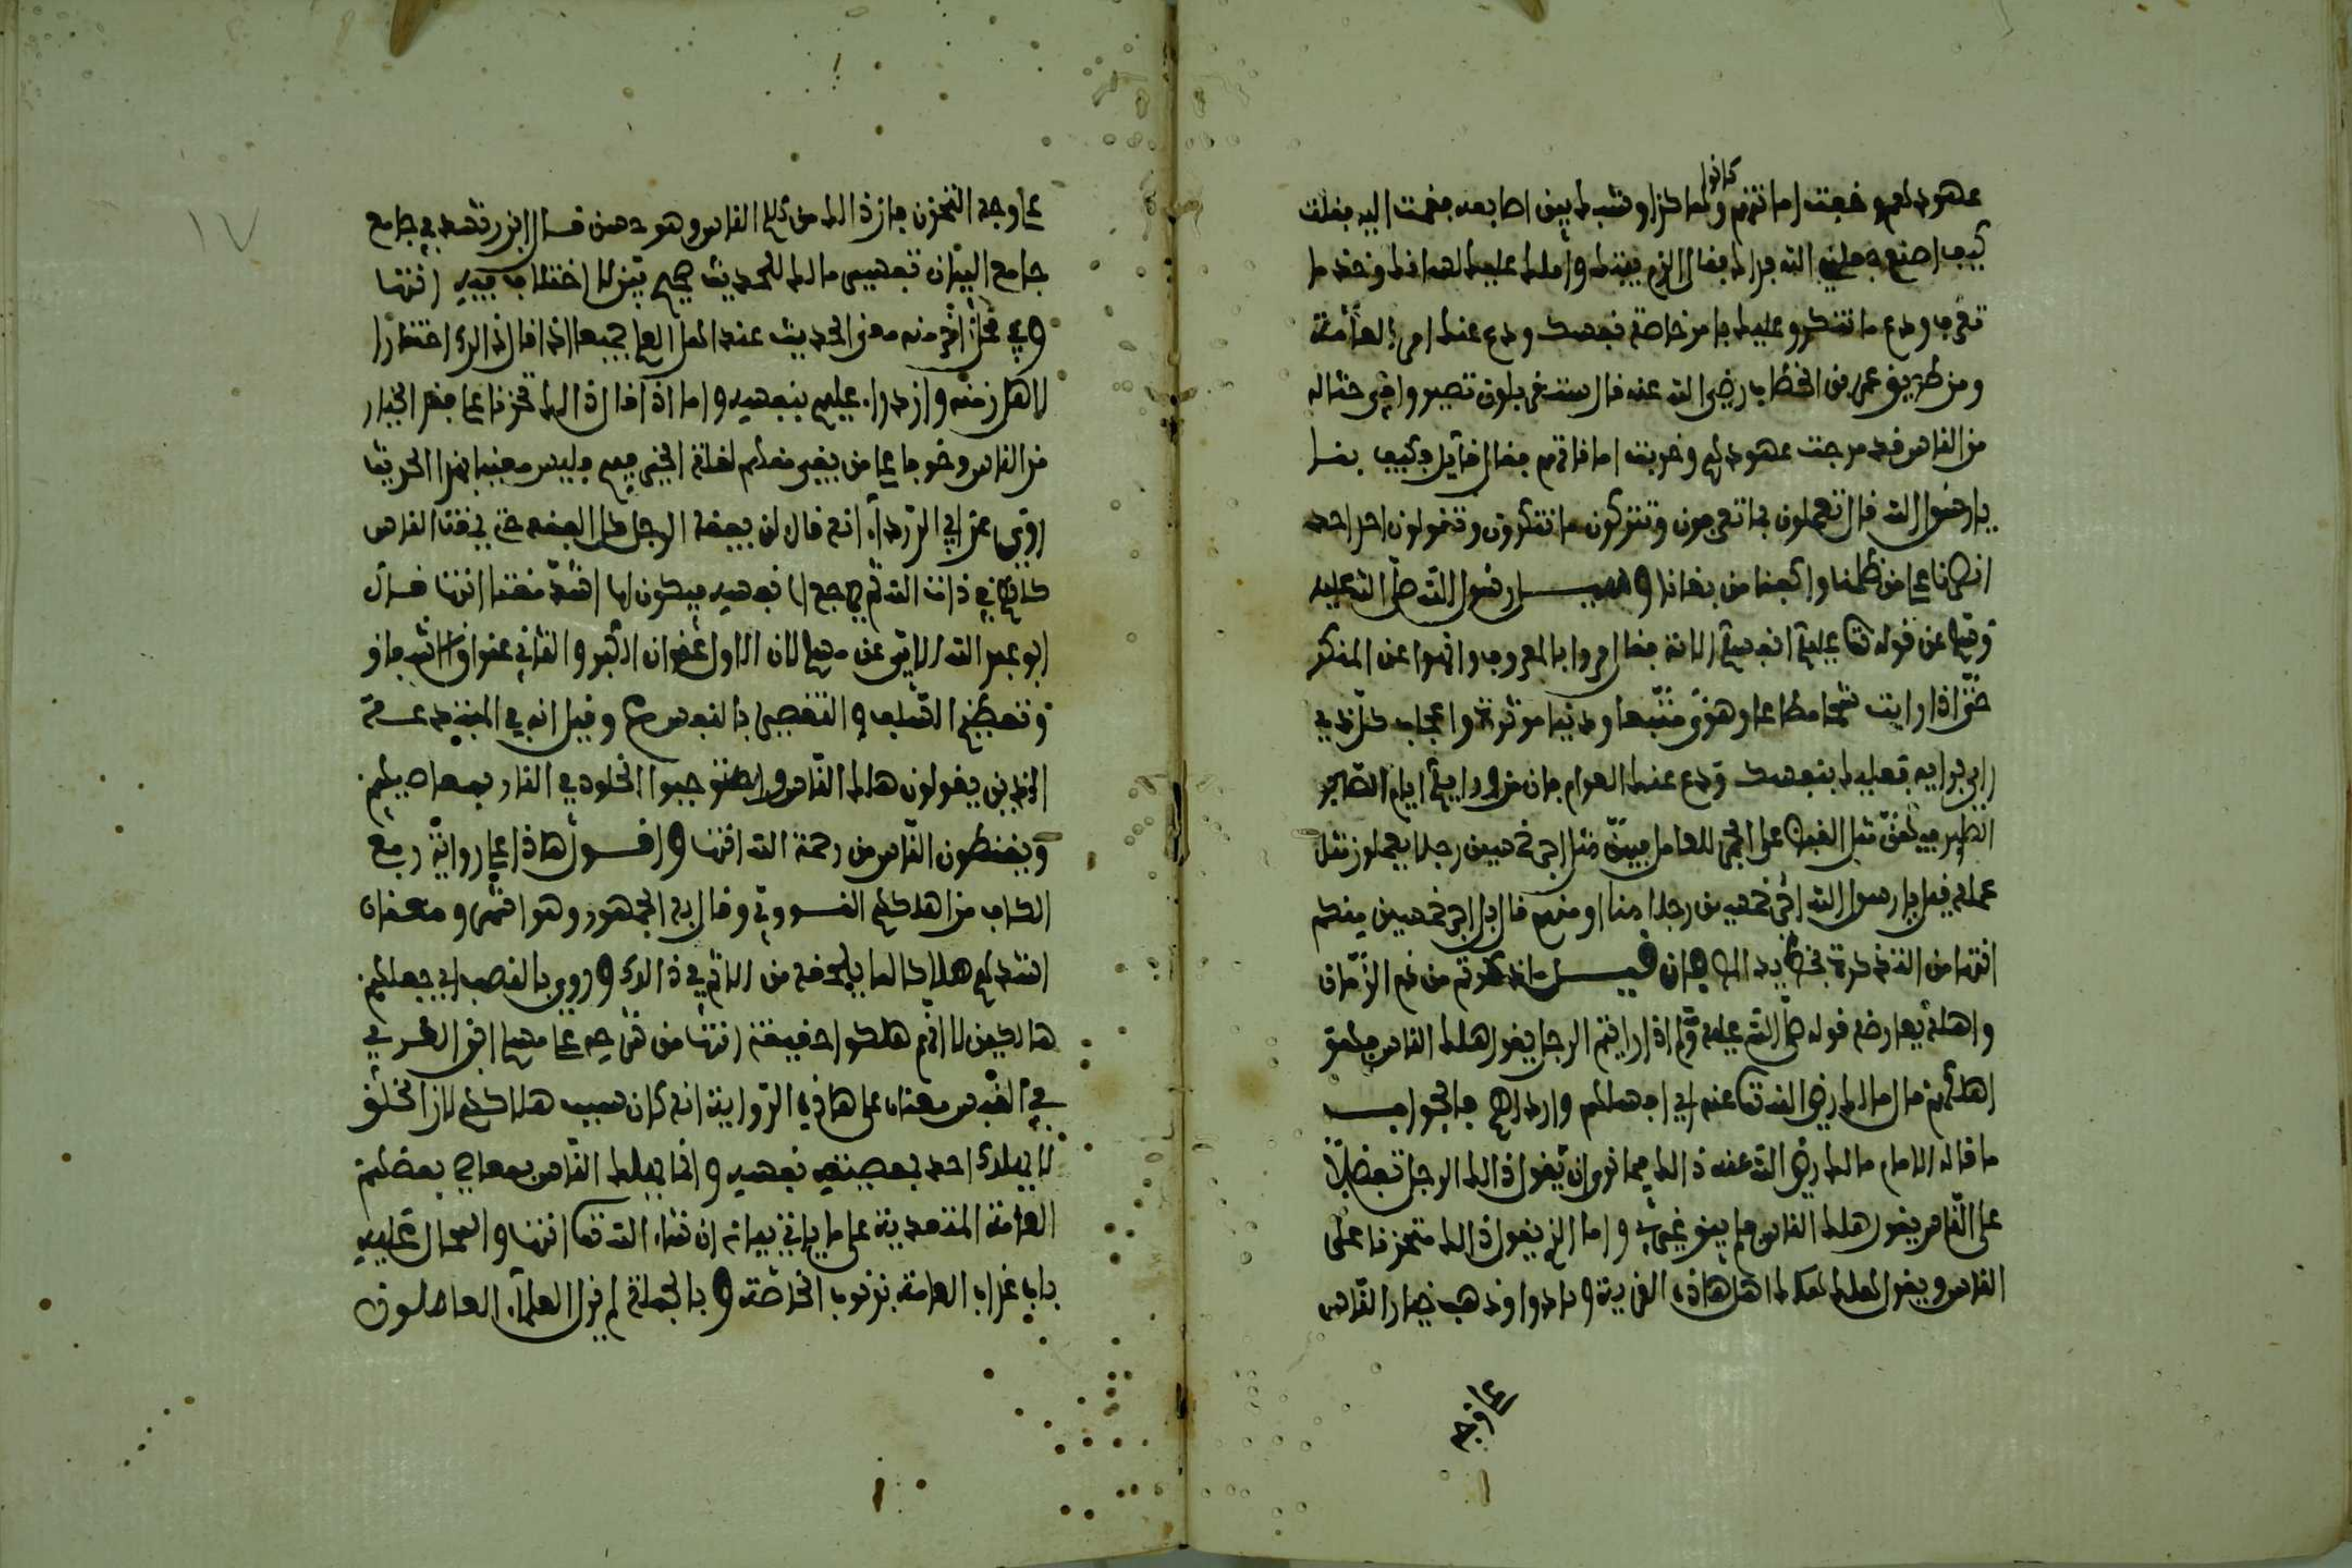 كانوا
عهودهم وخفت اماناتهم وكانوا هكذا وشبك بين اصابعه فقمت اليه فقلت
كيف اصنع جعلني الله فداك فقال الزم بيتك واملك عليك لسانك وخذ ما
تعرف ودع ما تنكر وعليك بامر خاصة نفسك ودع عنك امر العامة
ومن طريق عمر بن الخطاب رضي الله عنه قال ستغربلون حتى تصيروا في حثالة
من الناس قد مرجت عهودهم وخربت اماناتهم فقال قايل فكيف بنا
يا رسول الله قال تعملون بما تعرفون وتتركون ما تنكرون وتقولون احد احد
انصرنا على من ظلمنا واكفنا من بغانا وسيل رسول الله صلى الله عليه
وسلم عن قوله تعالى عليكم انفسكم الاية فقال امروا بالمعروف وانهوا عن المنكر
حتى اذا رايت شحا مطاعا وهوى متبعا ودنيا موثرة واعجاب كل ذي
راي برايه فعليك بنفسك ودع عنك العوام فان من ورايكم ايام الصبر
الصبر فيهن مثل القبض على الجمر للعامل فيهن مثل اجر خمسين رجلا يعملون مثل
عمله قيل يا رسول الله اجر خمسين رجلا منا او منهم قال بل اجر خمسين منكم
انتهى من التذكرة فخطابه فان قيل ما ذكرتم من ذم الزمان
واهله يعارضه قوله صلى الله عليه وسلم اذا رايتم الرجل يقول هلك الناس فهو
اهلكهم قال مالك رضي الله تعالى عنه اي افسلهم واردلهم فالجواب
ما قاله الامام مالك رضي الله عنه ذالك فيما نرى ان يقول ذالك الرجل تفضيلا
على الناس يقول هلك الناس فلم يبق غيري واما الذي يقول ذالك متحزنا على
الناس ويقول هلك هلك اهل هاذه القرية وبادوا وذهب خيار الناس
على وجه
١٧
على وجه التحزن فان ذالك من كلام الناس وهو حسن قال ابن رشد في جامع
جامع البيان تفسير مالك للحديث صحيح بين لا اختلاف فيه انتهى
وفي محل اخر منه معنى الحديث عند اهل العلم جميعا اذا قال ذالك احتقارا
لاهل زمنه وازدراء عليهم بنفسه واما اذا قال ذالك تحزنا على فقد الخيار
من الناس وخوفا على من بقي منهم لقلة الخير فيهم فليس معنيا بهذا الحديث
روي عن ابي الدرداء انه قال لن يفقه الرجل كل الفقه حتى يمقت الناس
كلهم في ذات الله ثم يرجع الى نفسه فيكون لها اشد مقتا انتهى قال
ابو عبد الله الابي عن مسلم لان الاول عنوان الكبر والثاني عنوان الشفقة
وتعظيم السلف والتقصير بالنفس وقيل انه في المبتدعة
الذين يقولون هلك الناس واستوجبوا الخلود في النار بمعاصيهم
ويقنطون الناس من رحمة الله انتهى وافول هاذا على رواية رفع
الكاف من اهلكهم النووي وقال به الجمهور وهو اشهر ومعناه
اشدهم هلاكا لما يلحقه من الاثم في ذالك وروي بالنصب اي جعلهم
هالكين لا انهم هلكوا حقيقة انتهى من شرحه على مسلم ابن العربي
في القبس معناه على هاذه الرواية انه كان سبب هلاكهم لان الخلق
لا يهلك احد بمعصية نفسه وانما يهلك الناس بمعاصي بعضهم
العامة المتعدية على ما ياتي بيانه ان شاء الله تعالى انتهى والمحال عليه
باب عذاب العامة بذنوب الخاصة وبالجملة لم يزل العلماء العاملون